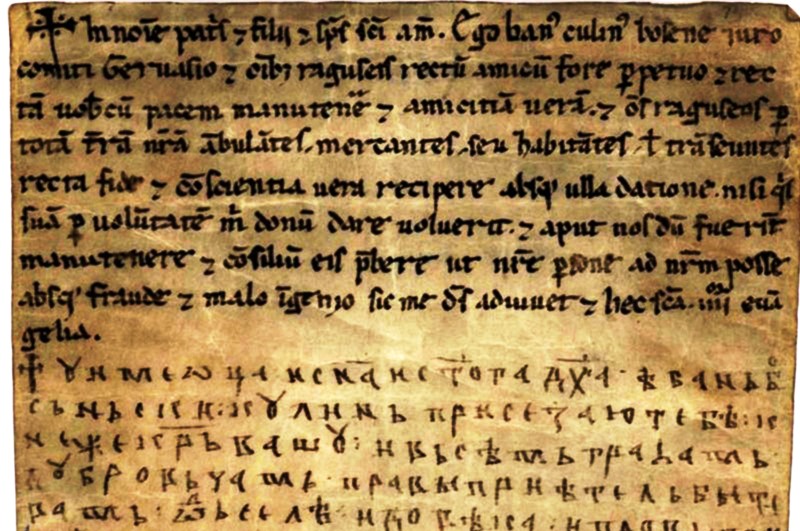 ☩ In noīe patˢ ⁊ filii ⁊ sp̄s sc̄i am̄. Ego banʾ culinʾ bosene iuro
comiti Geruasio ⁊ oībꝫ raguseis rectū amicū fore ꝑpetuo ⁊ rec
tā uob̄cū pacem manutenē ⁊ amicitiā uerā. ⁊ oīs raguseos ꝑ
totā t̄rā nr̄ā ābulātes. mercantes. seu habitātes. ł trāseuntes
recta fide ⁊ cōscientia uera recipere absqʾ ulla datione. nisi qⁱs
suā ꝑ uolūtatē m̄ donū dare uoluerit. ⁊ aput nos dū fuerīt
manutenere ⁊ cōsiliū eis p̄bere ut nr̄e ꝑsone ad nr̄m posse
absqʾ fraude ⁊ malo īgenio sic me d̄s adiuuet ⁊ hec sc̄a .iiii. euā
gelia.
☩ ꙋ име ѡца и сн҃а и ст҃ога дх҃а · ѣ бань б
сьньски : кꙋлинь присезаю тебѣ : к
неже кр҃ьвашꙋ : и вьсѣмь грагамь
дꙋбровьчамь · правы приѣтель быти
вамь : ѿ селѣ : и довѣка ·